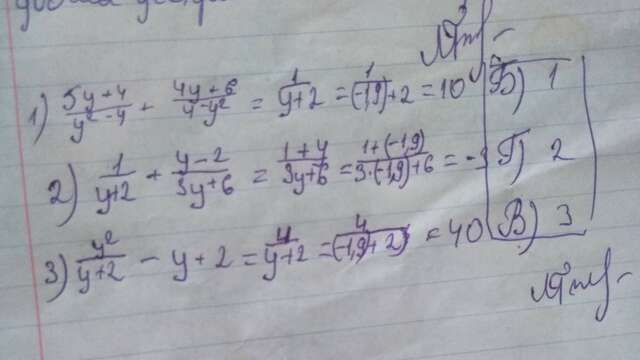 1) (5y+4)/(y²-4) + (4y+6)/(4-y²) = 1/(y+2) = 1/((-1,9)+2) = 10 Б) 1
2) 1/(y+2) + (y-2)/(3y+6) = (1+y)/(3y+6) = (1+(-1,9))/(3·(-1,9)+6) = -3 Г) 2
3) y²/(y+2) - y + 2 = 4/(y+2) = 4/(-1,9)+2) = 40 В) 3